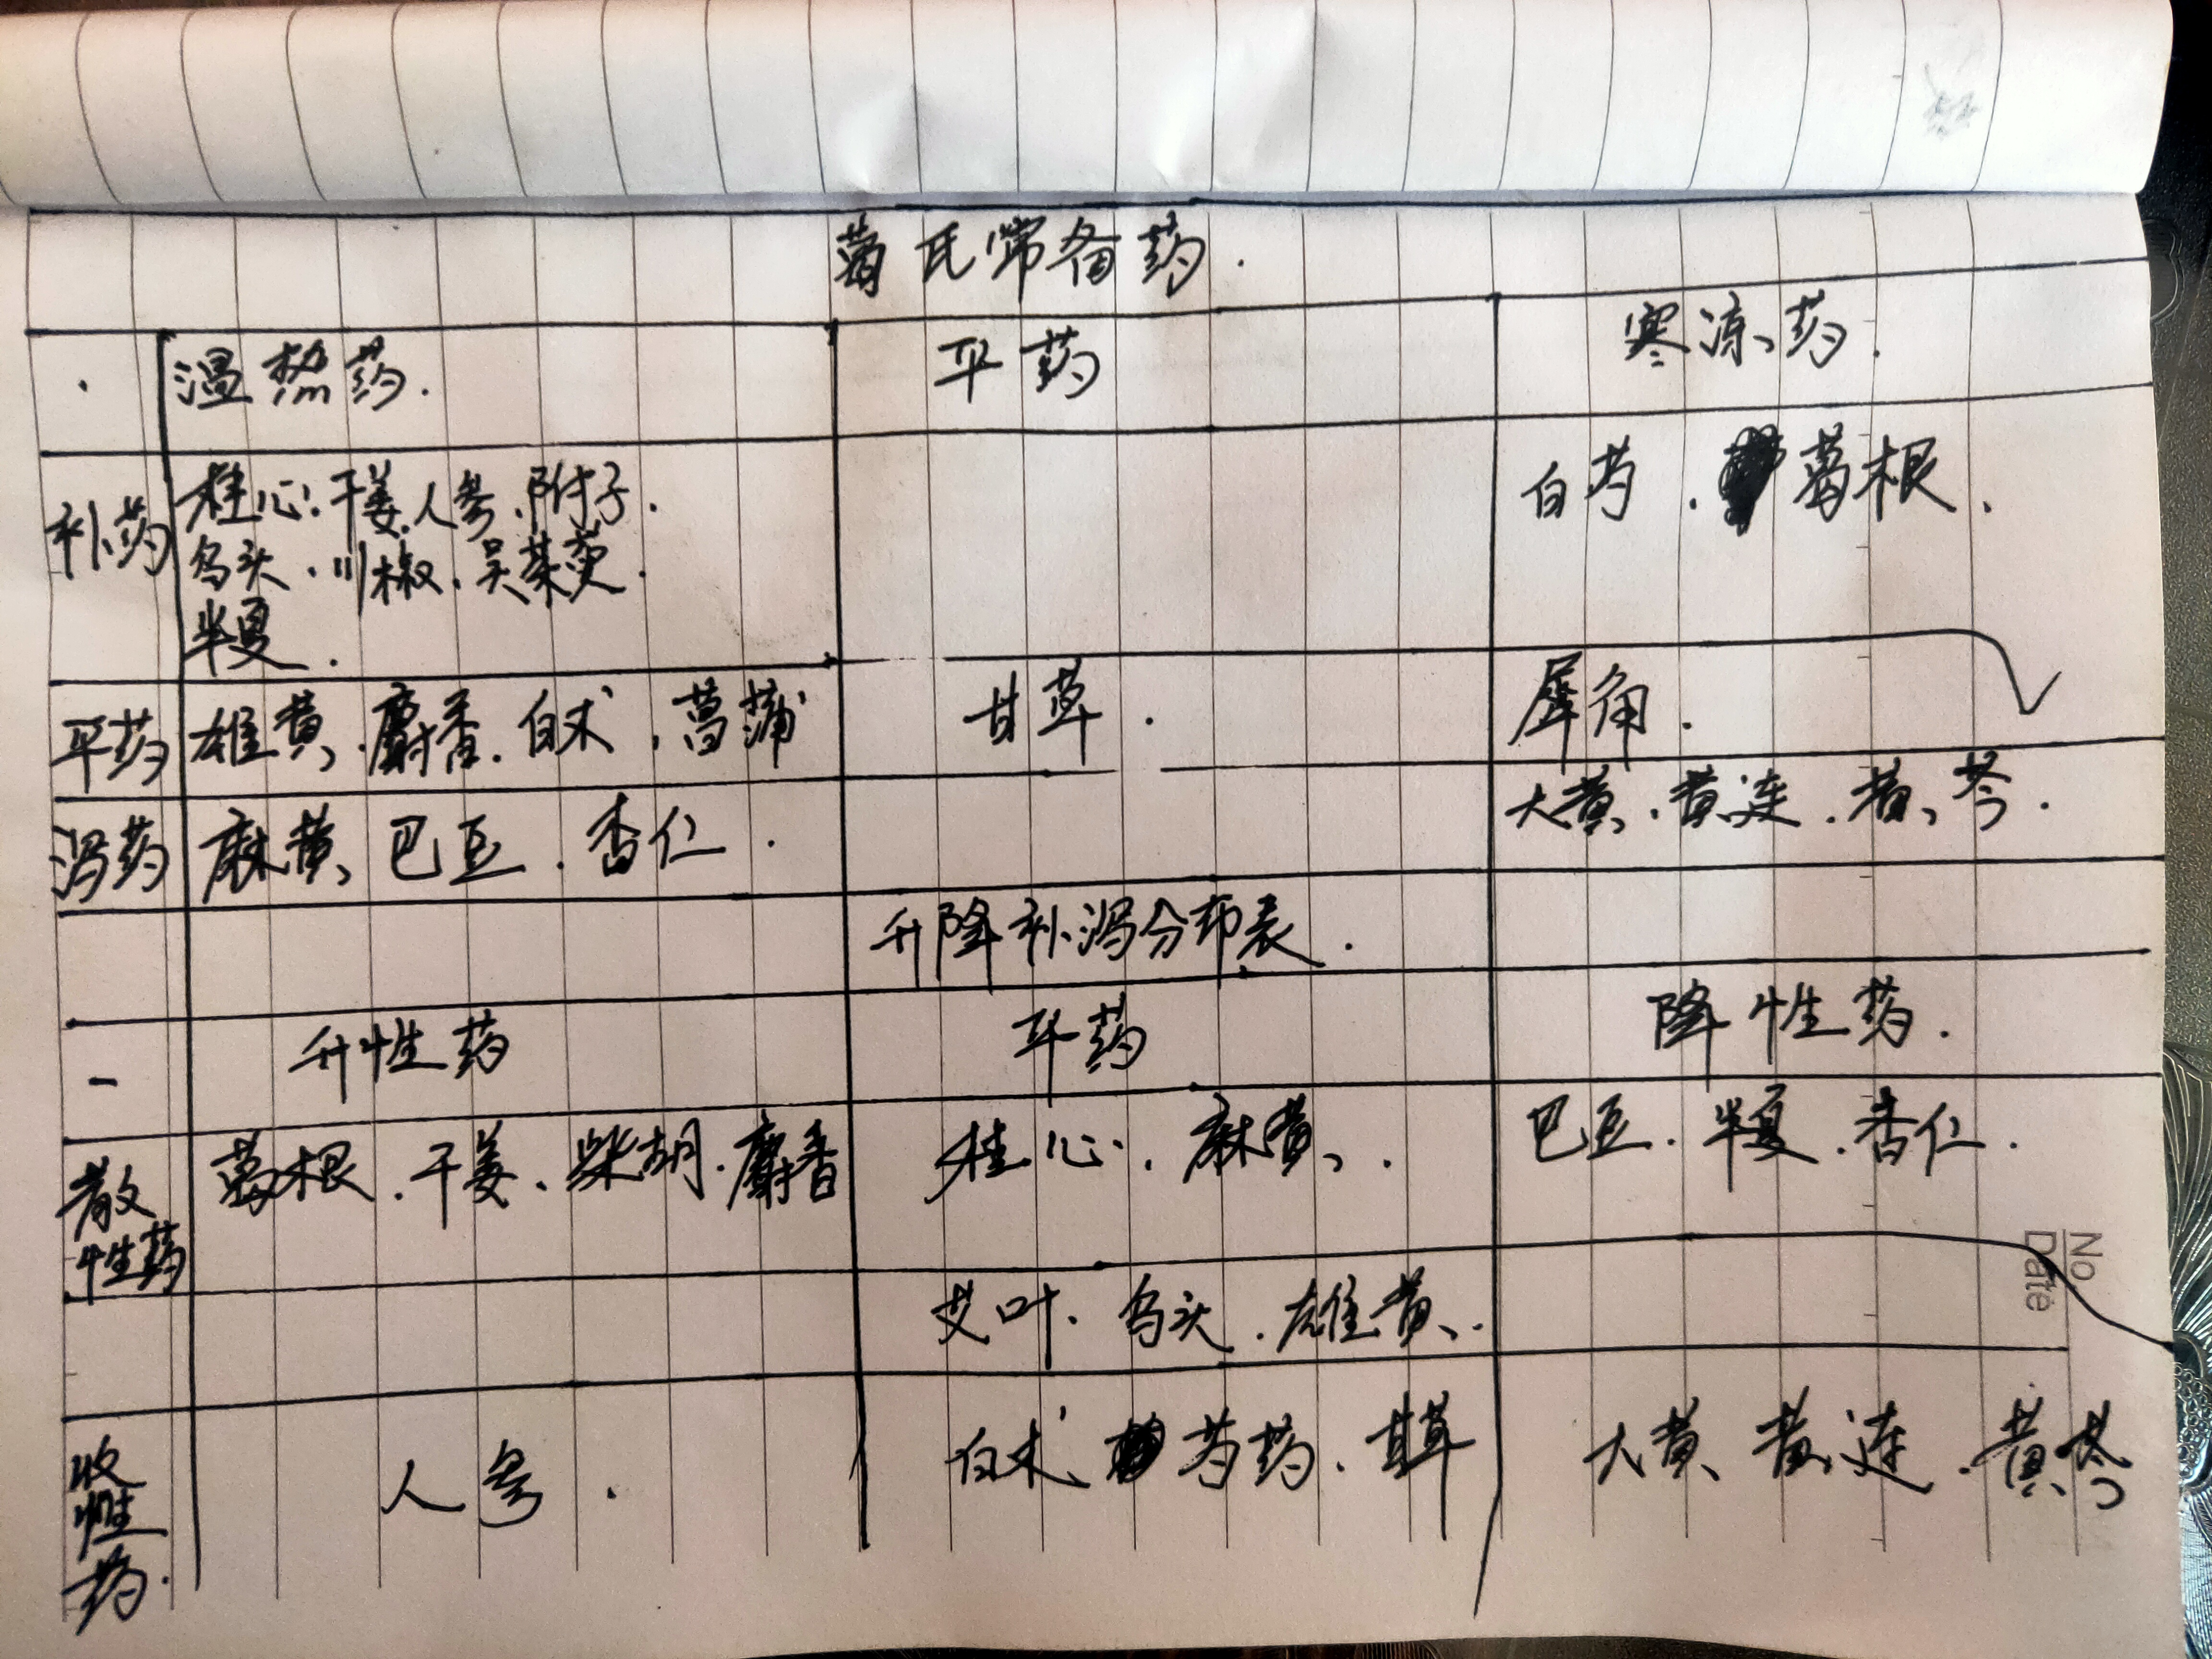 葛氏常备药.
温热药. 平药 寒凉药.
补药 桂心.干姜.人参.附子. 白芍. 葛根.
乌头.川椒.吴茱萸.
半夏.
平药 雄黄、麝香.白术.菖蒲 甘草. 犀角.
泻药 麻黄、巴豆.杏仁. 大黄、黄连.黄芩.
升降补泻分布表.
升性药 平药 降性药.
散性药 葛根.干姜、柴胡.麝香 桂心.麻黄. 巴豆.半夏.杏仁.
艾叶.乌头.雄黄.
收性药. 人参. 白术 芍药.甘草 大黄、黄连.黄芩
No
Date